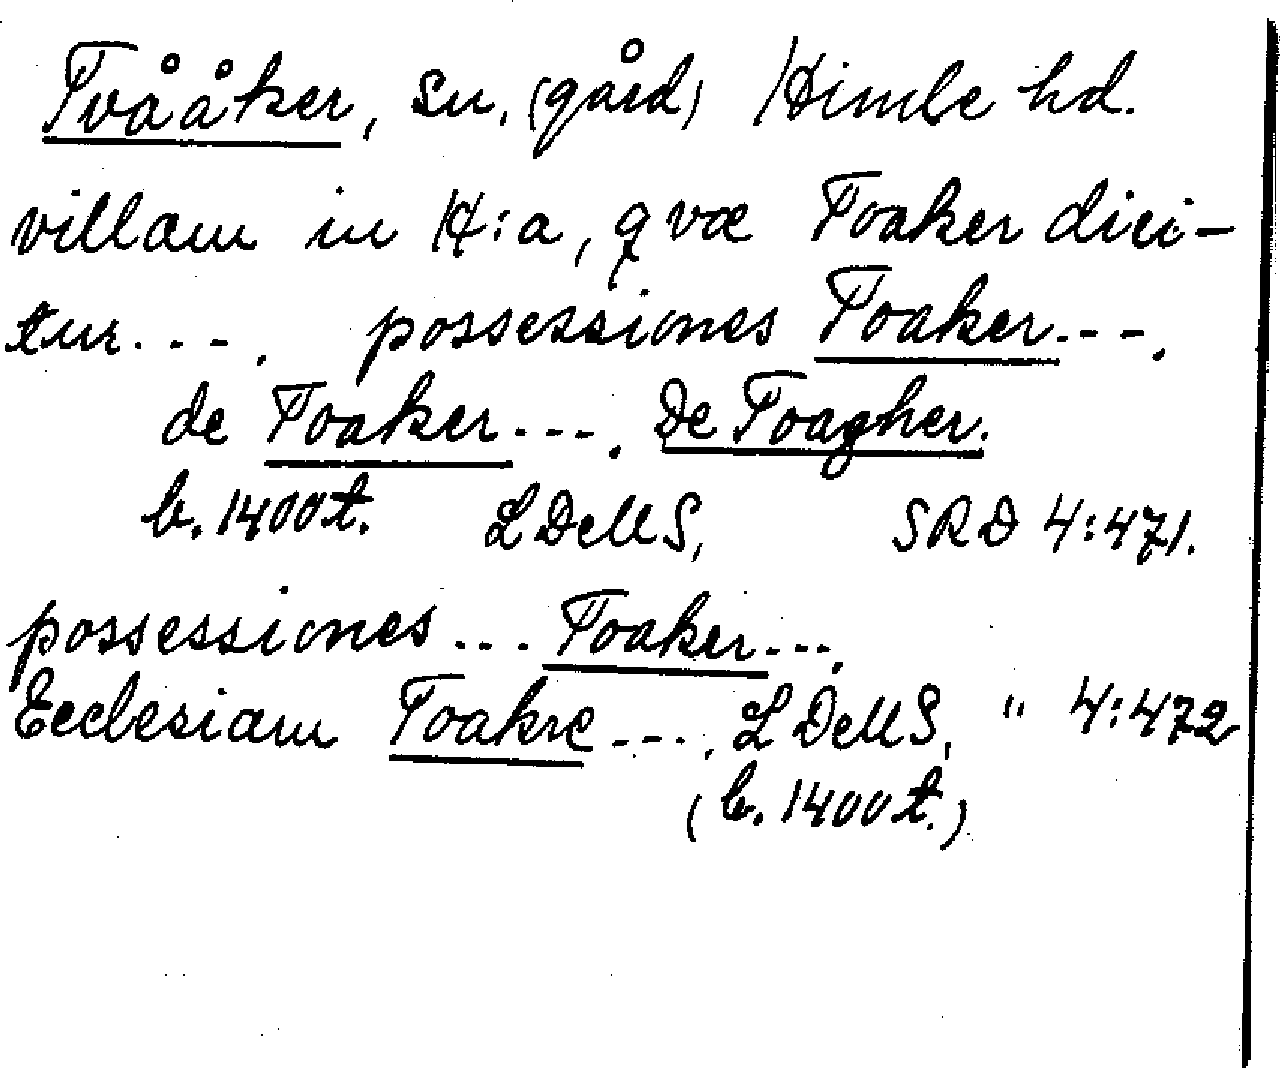 Tvååker, sn, (gård) Himle hd.
villam in H:a, qvæ Toaker dici-
tur.--. possessiones Toaker.--.
de Toaker.---. De Toagher.
b. 1400t. LDeMS, SRD 4:471.
possessiones ... Toaker.--.
Ecclesiam Toakre.---. LDeMS, " 4:472
(b. 1400t.)